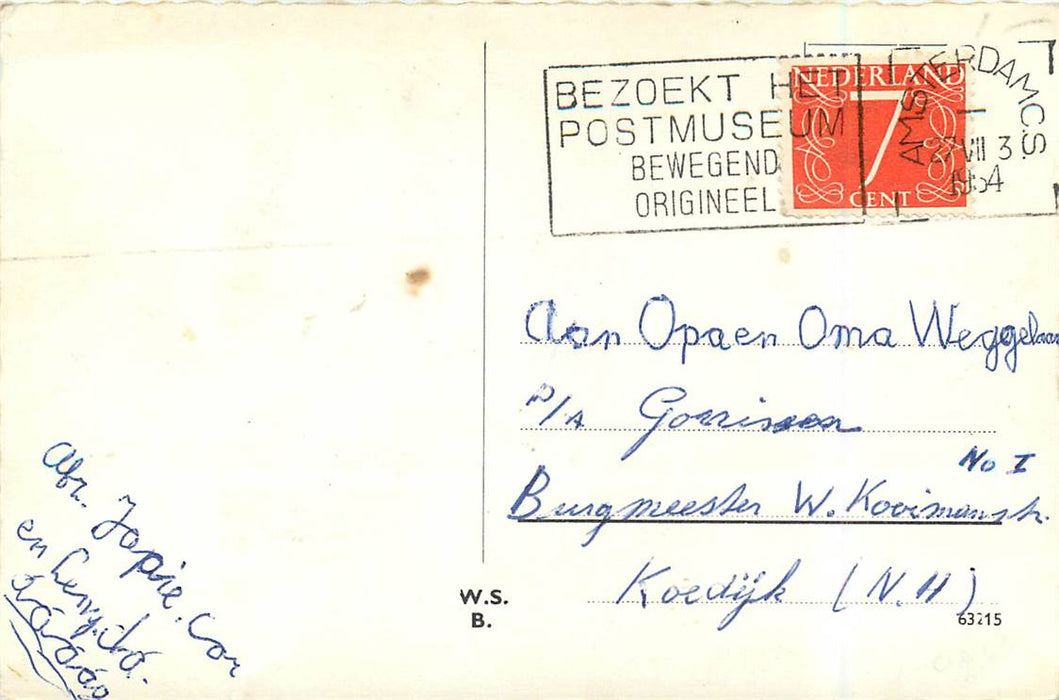 BEZOEKT HET
POSTMUSEUM
BEWEGEND
ORIGINEEL
NEDERLAND
7
CENT
AMSTERDAM C.S.
27 VII 3
1954
Aan Opa en Oma Weggelaar
P/A Gorrissen
No I
Burgmeester W. Kooimanstr.
Koedijk (N.H)
Afz. Jopie, Cor
en
W.S.
B.
63215